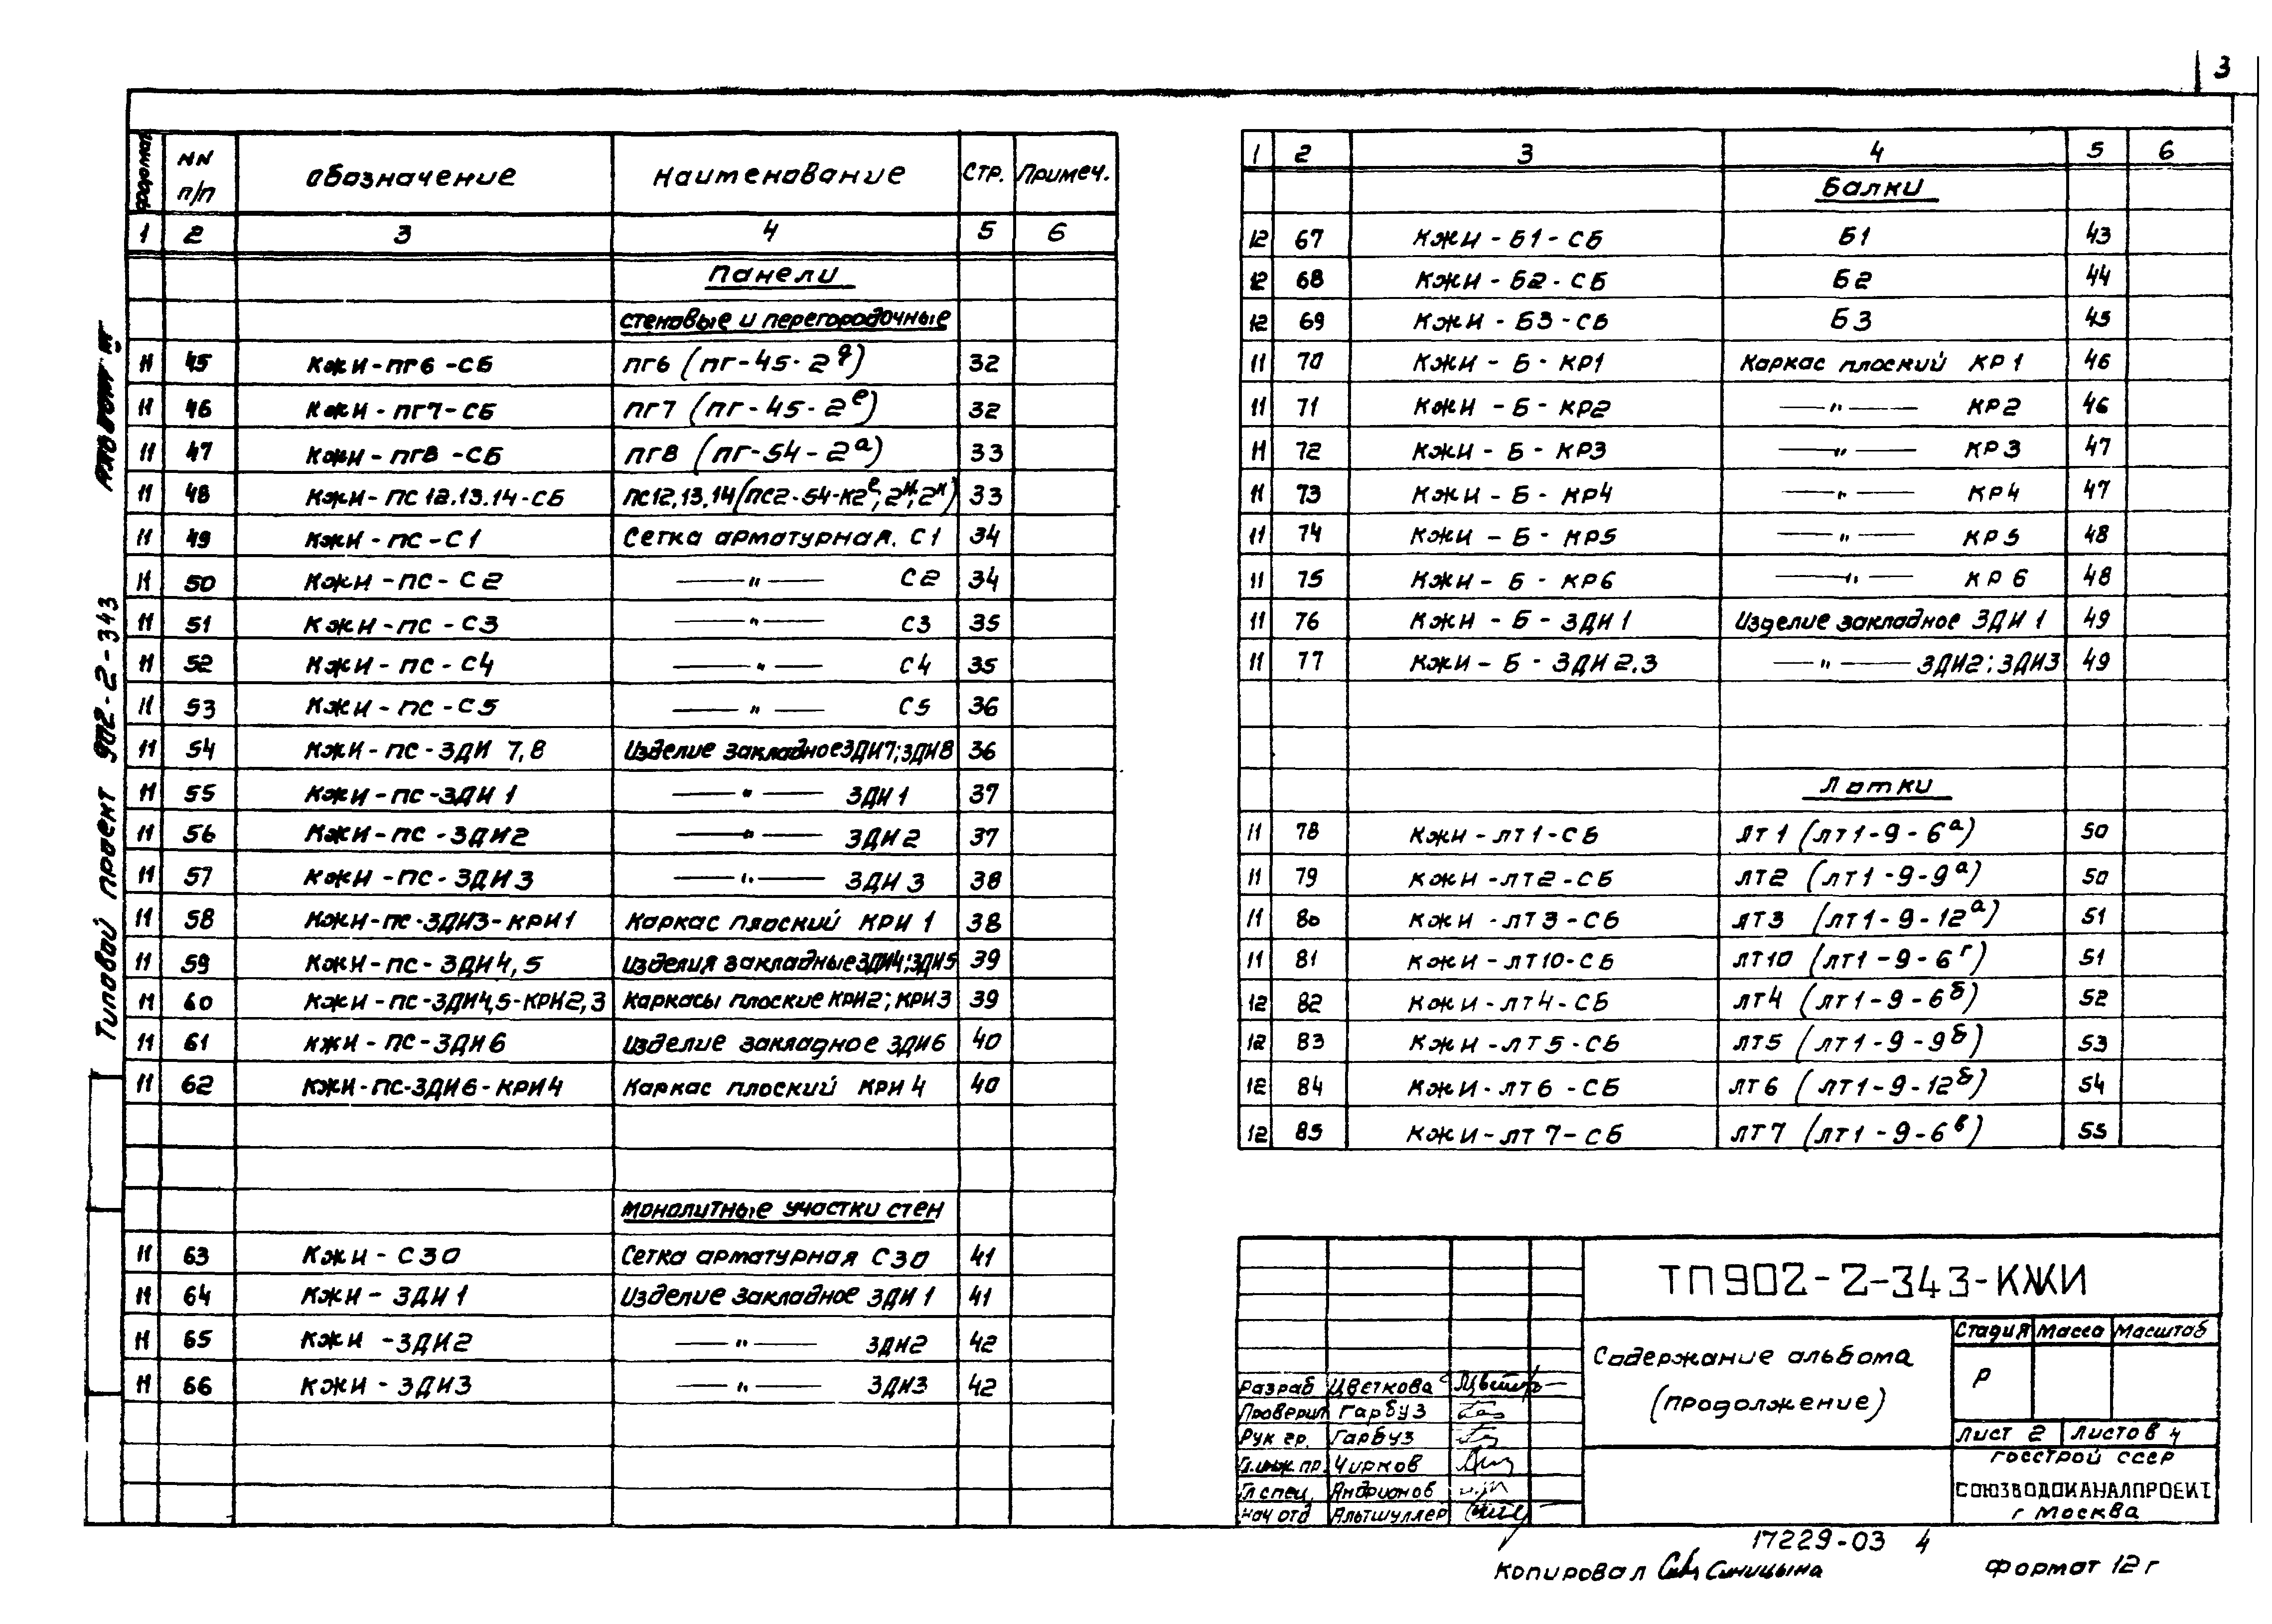 3
Формат | NN п/п | Обозначение | Наименование | Стр. | Примеч.
1 | 2 | 3 | 4 | 5 | 6
Панели
стеновые и перегородочные
11 | 45 | КЖИ-ПГ6-СБ | ПГ6 (ПГ-45-2д) | 32
11 | 46 | КЖИ-ПГ7-СБ | ПГ7 (ПГ-45-2е) | 32
11 | 47 | КЖИ-ПГ8-СБ | ПГ8 (ПГ-54-2а) | 33
11 | 48 | КЖИ-ПС12.13.14-СБ | ПС12,13,14 (ПС2-54-К2е; 2и; 2к) | 33
11 | 49 | КЖИ-ПС-С1 | Сетка арматурная. С1 | 34
11 | 50 | КЖИ-ПС-С2 | —"— С2 | 34
11 | 51 | КЖИ-ПС-С3 | —"— С3 | 35
11 | 52 | КЖИ-ПС-С4 | —"— С4 | 35
11 | 53 | КЖИ-ПС-С5 | —"— С5 | 36
11 | 54 | КЖИ-ПС-ЗДИ 7,8 | Изделие закладное ЗДИ7; ЗДИ8 | 36
11 | 55 | КЖИ-ПС-ЗДИ 1 | —"— ЗДИ 1 | 37
11 | 56 | КЖИ-ПС-ЗДИ2 | —"— ЗДИ 2 | 37
11 | 57 | КЖИ-ПС-ЗДИ3 | —"— ЗДИ 3 | 38
11 | 58 | КЖИ-ПС-ЗДИ3-КРИ1 | Каркас плоский КРИ 1 | 38
11 | 59 | КЖИ-ПС-ЗДИ4,5 | Изделия закладные ЗДИ4; ЗДИ5 | 39
11 | 60 | КЖИ-ПС-ЗДИ4,5-КРИ2,3 | Каркасы плоские КРИ2; КРИ3 | 39
11 | 61 | КЖИ-ПС-ЗДИ6 | Изделие закладное ЗДИ6 | 40
11 | 62 | КЖИ-ПС-ЗДИ6-КРИ4 | Каркас плоский КРИ 4 | 40
Монолитные участки стен
11 | 63 | КЖИ-С30 | Сетка арматурная С30 | 41
11 | 64 | КЖИ-ЗДИ1 | Изделие закладное ЗДИ 1 | 41
11 | 65 | КЖИ-ЗДИ2 | —"— ЗДИ2 | 42
11 | 66 | КЖИ-ЗДИ3 | —"— ЗДИ3 | 42
1 | 2 | 3 | 4 | 5 | 6
Балки
12 | 67 | КЖИ-Б1-СБ | Б1 | 43
12 | 68 | КЖИ-Б2-СБ | Б2 | 44
12 | 69 | КЖИ-Б3-СБ | Б3 | 45
11 | 70 | КЖИ-Б-КР1 | Каркас плоский КР 1 | 46
11 | 71 | КЖИ-Б-КР2 | —"— КР2 | 46
11 | 72 | КЖИ-Б-КР3 | —"— КР3 | 47
11 | 73 | КЖИ-Б-КР4 | —"— КР4 | 47
11 | 74 | КЖИ-Б-КР5 | —"— КР5 | 48
11 | 75 | КЖИ-Б-КР6 | —"— КР6 | 48
11 | 76 | КЖИ-Б-ЗДИ1 | Изделие закладное ЗДИ 1 | 49
11 | 77 | КЖИ-Б-ЗДИ2.3 | —"— ЗДИ2; ЗДИ3 | 49
Лотки
11 | 78 | КЖИ-ЛТ1-СБ | ЛТ1 (ЛТ1-9-6а) | 50
11 | 79 | КЖИ-ЛТ2-СБ | ЛТ2 (ЛТ1-9-9а) | 50
11 | 80 | КЖИ-ЛТ3-СБ | ЛТ3 (ЛТ1-9-12а) | 51
11 | 81 | КЖИ-ЛТ10-СБ | ЛТ10 (ЛТ1-9-6г) | 51
12 | 82 | КЖИ-ЛТ4-СБ | ЛТ4 (ЛТ1-9-6б) | 52
12 | 83 | КЖИ-ЛТ5-СБ | ЛТ5 (ЛТ1-9-9б) | 53
12 | 84 | КЖИ-ЛТ6-СБ | ЛТ6 (ЛТ1-9-12б) | 54
12 | 85 | КЖИ-ЛТ7-СБ | ЛТ7 (ЛТ1-9-6в) | 55
Типовой проект 902-2-343 Альбом III
ТП902-2-343-КЖИ
Содержание альбома
(продолжение)
Стадия | Масса | Масштаб
Р
Лист 2 | Листов 4
Госстрой СССР
СОЮЗВОДОКАНАЛПРОЕКТ
г Москва
Разраб | Цветкова
Проверил | Гарбуз
Рук гр. | Гарбуз
Гл.инж.пр. | Чирков
Гл спец. | Андрианов
Нач отд | Альтшуллер
17229-03 4
Копировал Синицына
Формат 12г